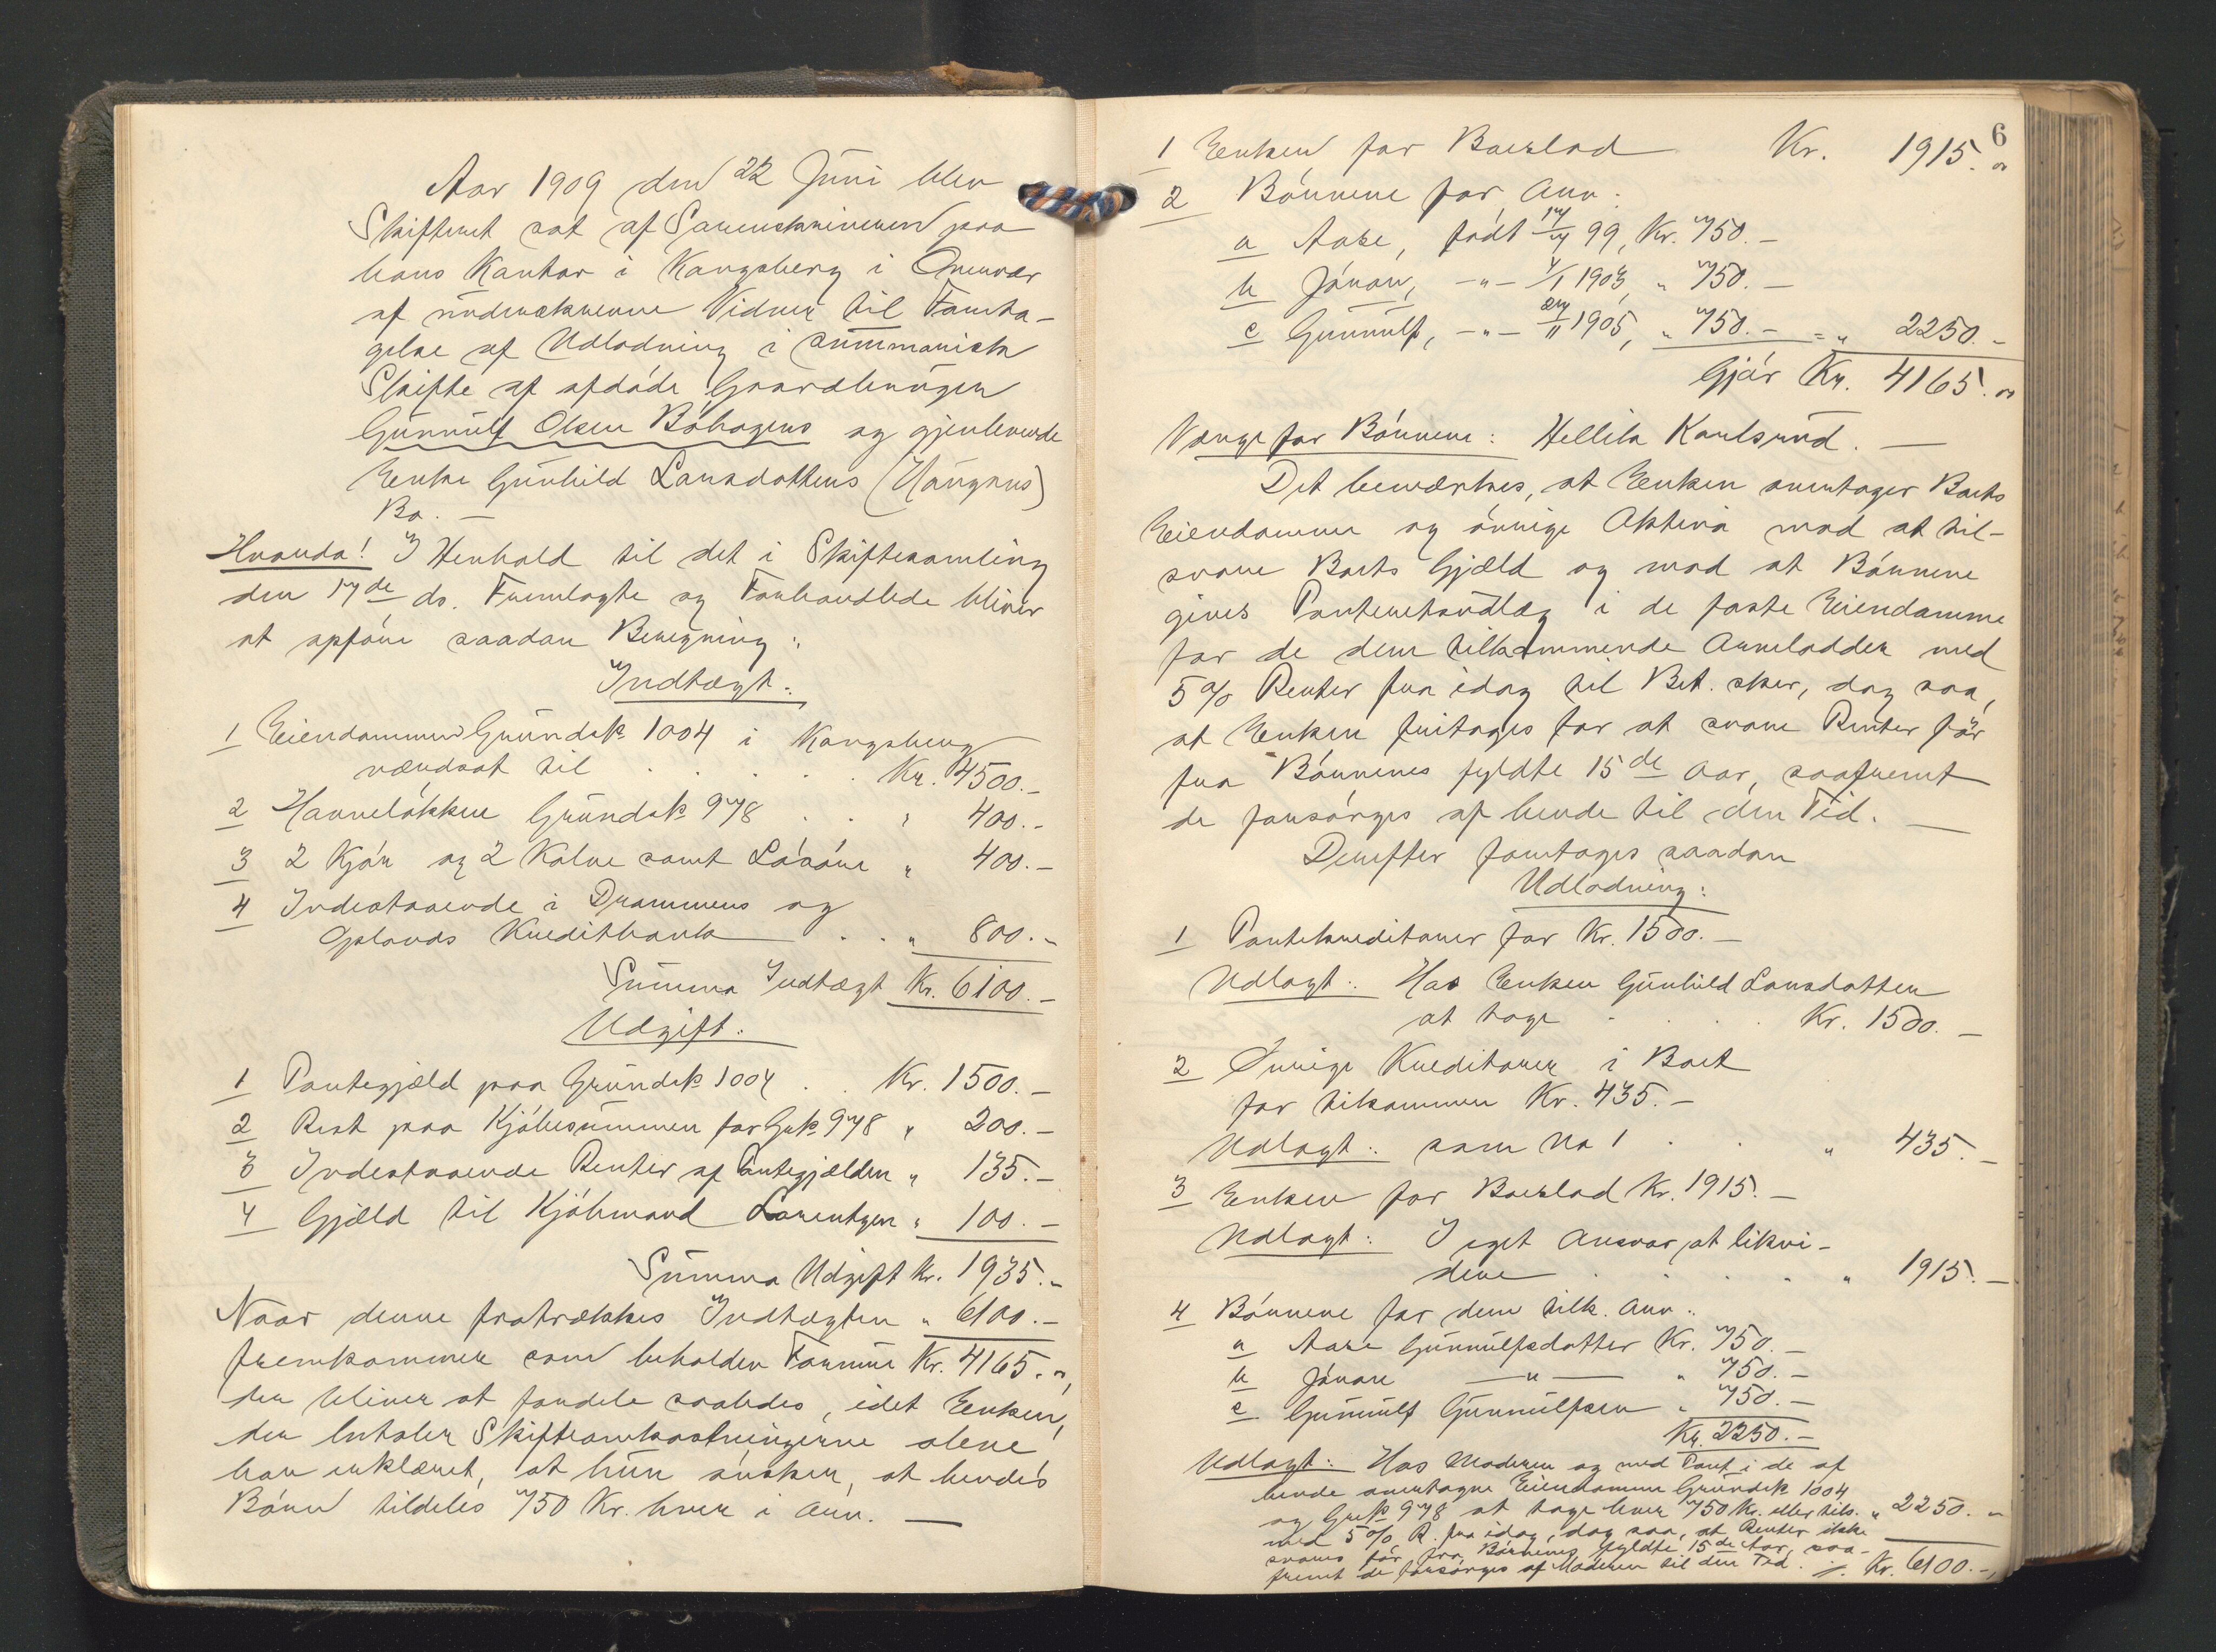 Aar 1909 den 22 Juni blev
Skifteret sat af Sorenskriveren paa
hans Kontor i Kongsberg i Overvær
af undertegnede Vidner til Foreta-
gelse af Udlodning i summarisk
Skifte af afdøde Gaardbruger
Gunnulf Olsen Bøhagens og gjenlevende
Enke Gunhild Larsdatters (Haugens)
Bo. —
Hvorda! I Henhold til det i Skiftesamling
den 17de ds. Fremlagte og Forhandlede bliver
at opføre saadan Beregning:
Indtægt:
1 Eiendommen Grundsk. 1004 i Kongsberg
værdsat til . . . . . Kr. 4500.-
2 Havneløkken Grundsk 978 . . " 400.-
3 2 Kjør og 2 Kalve samt Løsøre " 400.-
4 Indestaaende i Drammens og
Oplands Kreditbank . . " 800.-
Summa Indtægt Kr. 6100.-
Udgift:
1 Pantegjæld paa Grundsk 1004 . . Kr. 1500.-
2 Rest paa Kjøbesummen for Gsk 978 " 200.-
3 Indestaaende Renter af Pantegjælden " 135.-
4 Gjæld til Kjøbmand Lorentzen " 100.-
Summa Udgift Kr. 1935.-
Naar denne fratrækkes Indtægten " 6100.-
fremkommer som beholden Formue Kr. 4165.-,
der bliver at fordele saaledes, idet Enken,
der betaler Skifteomkostningerne alene
har erklæret, at hun ønsker, at hendes
Børn tildeles 750 Kr. hver i Arv. —
6
1 Enken for Boeslod Kr. 1915.-
2 Børnene for Arv:
a Aase, født 17/7 99, Kr. 750.-
b Jøran, -"- 4/1 1903, " 750.-
c Gunnulf, -"- 27/11 1905, " 750.- = " 2250.-
Gjør Kr. 4165.-
Værge for Børnene: Hellik Karlsrud. —
Det bemærkes, at Enken overtager Boets
Eiendomme og øvrige Aktiva mod at til-
svare Boets Gjæld og mod at Børnene
gives Panteretsudlæg i de faste Eiendomme
for de dem tilkommende Arvelodder med
5 % Renter fra idag til Bet. sker, dog saa,
at Enken fritages for at svare Renter før
fra Børnenes fyldte 15de Aar, saafremt
de forsørges af hende til den Tid. —
Derefter foretages saadan
Udlodning:
1 Pantekreditorer for Kr. 1500.-
Udlagt: Hos Enken Gunhild Larsdatter
at tage . . . . Kr. 1500.-
2 Øvrige Kreditorer i Boet
for tilsammen Kr. 435.-
Udlagt: som No 1 . . " 435.-
3 Enken for Boeslod Kr. 1915.-
Udlagt: I eget Ansvar at likvi-
dere . . . . . " 1915.-
4 Børnene for dem tilk. Arv:
a Aase Gunnulfsdatter Kr. 750.-
b Jøran —"— " 750.-
c Gunnulf Gunnulfsen " 750.-
Kr. 2250.-
Udlagt: Hos Moderen og med Pant i de af
hende overtagne Eiendomme Grundsk 1004
og Grsk 978 at tage hver 750 Kr. eller tils. " 2250.-
med 5 % R. fra idag, dog saa, at Renter ikke
svares før fra Børnenes fyldte 15de Aar, saa-
fremt de forsørges af Moderen til den Tid. ·/. Kr. 6100.-,